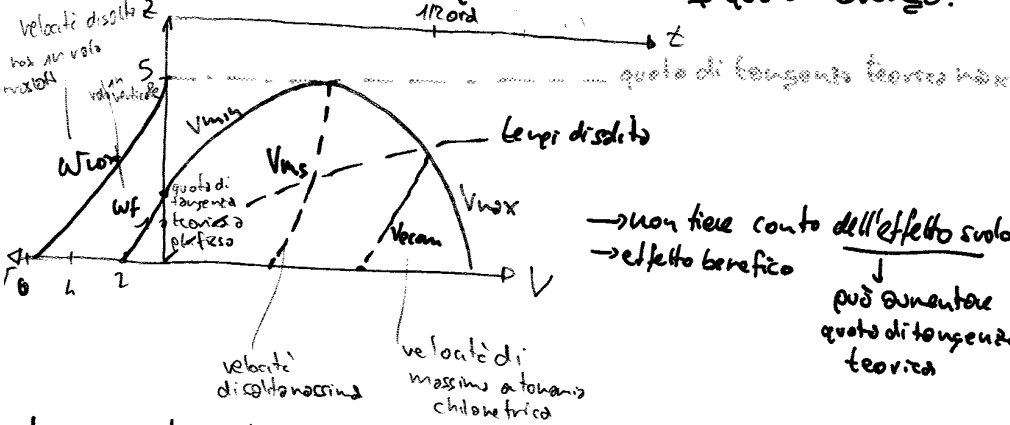 velocità di salita
max in volo
Z
1/2 ora
t
in
volo verticale
5
quota di tangenza teorica max
Vmin
tempi di salita
Vms
wf
quota di
tangenza
teorica a
p.to fisso
Vmax
Vecon
→ non tiene conto dell'effetto suolo
→ effetto benefico
può aumentare
quota di tangenza
teorica
6 4 2
V
velocità
di salita massima
velocità di
massima autonomia
chilometrica